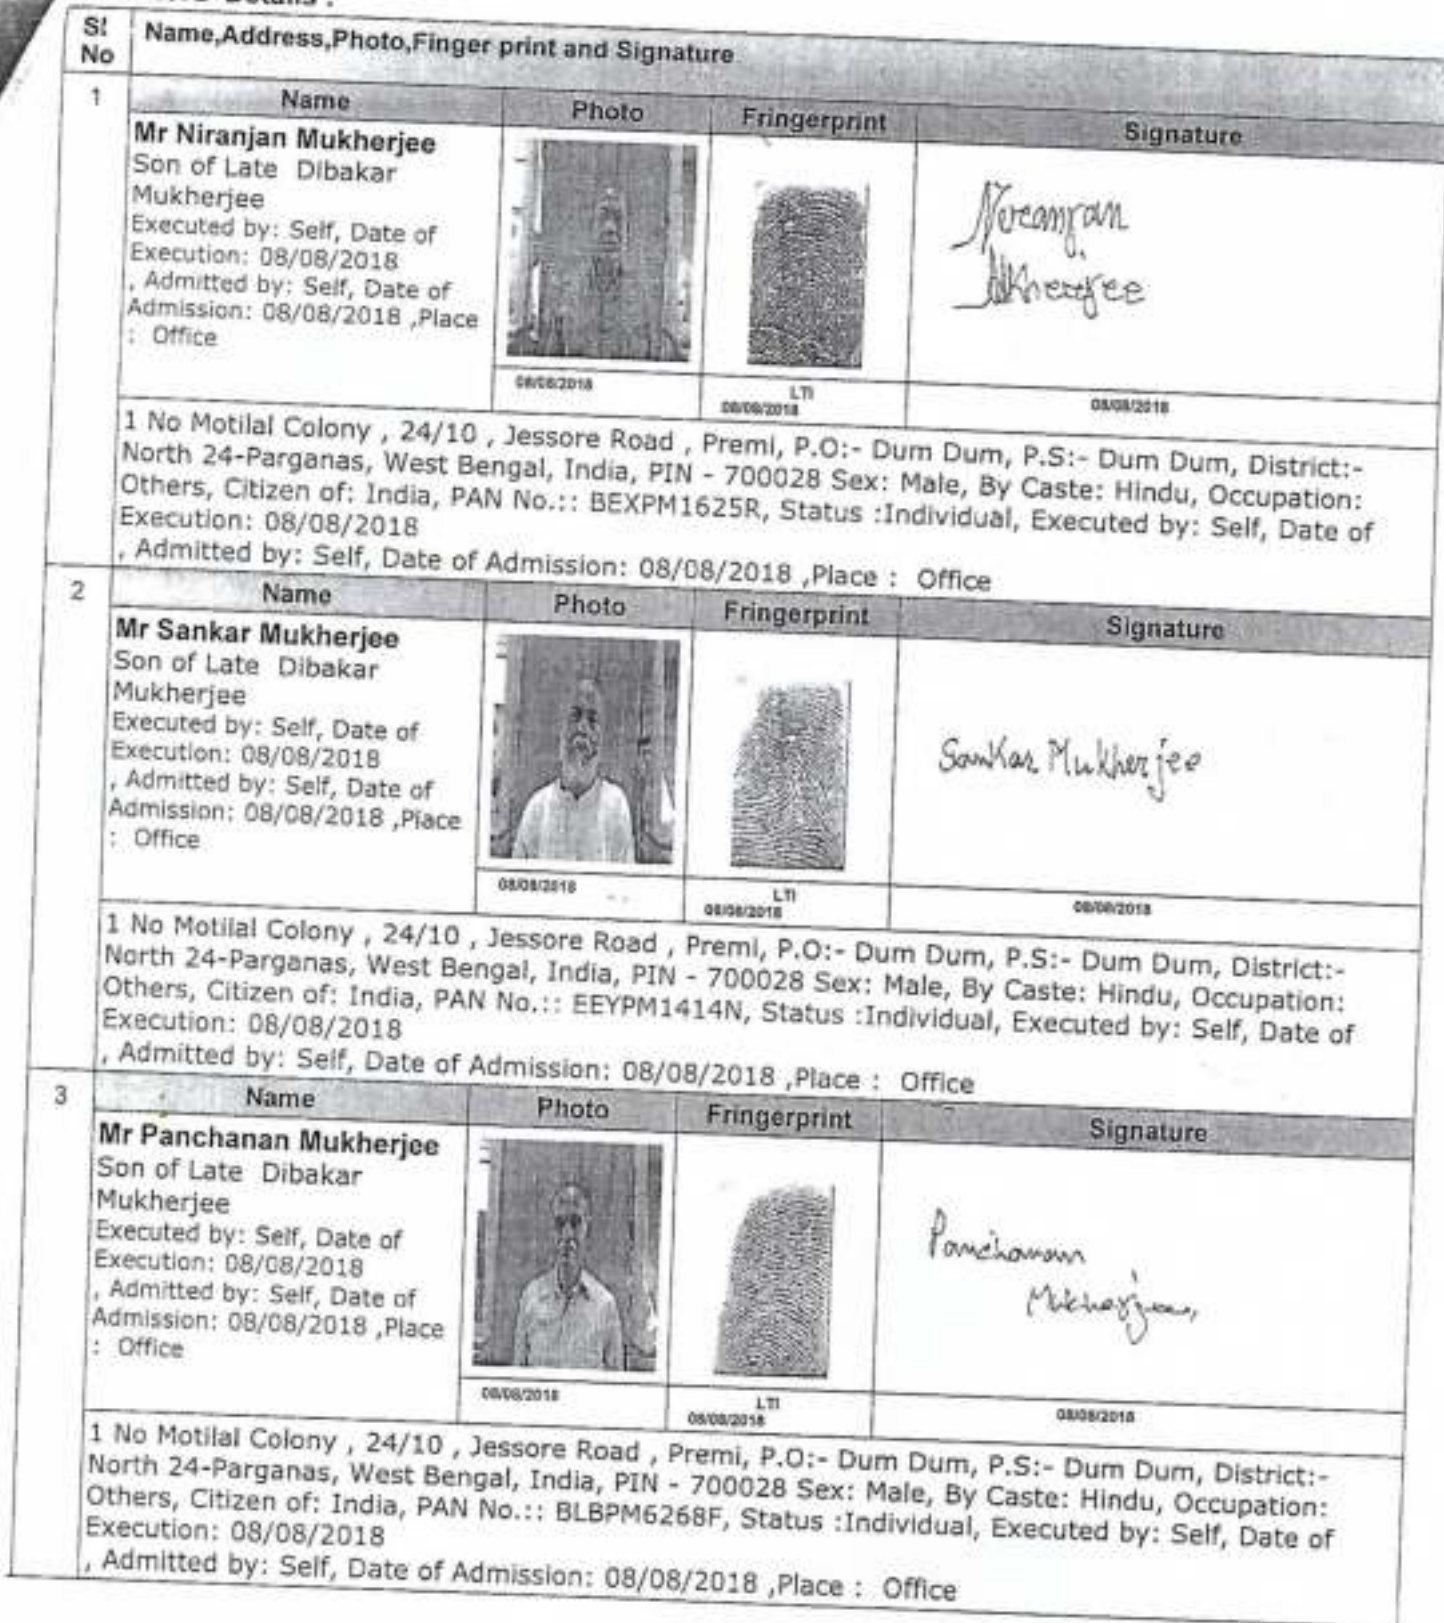 Details :
Sl No
Name,Address,Photo,Finger print and Signature
1
Name
Photo
Fringerprint
Signature
Mr Niranjan Mukherjee
Son of Late Dibakar
Mukherjee
Executed by: Self, Date of
Execution: 08/08/2018
, Admitted by: Self, Date of
Admission: 08/08/2018 ,Place
: Office
08/08/2018
LTI
08/08/2018
08/08/2018
1 No Motilal Colony , 24/10 , Jessore Road , Premi, P.O:- Dum Dum, P.S:- Dum Dum, District:-
North 24-Parganas, West Bengal, India, PIN - 700028 Sex: Male, By Caste: Hindu, Occupation:
Others, Citizen of: India, PAN No.:: BEXPM1625R, Status :Individual, Executed by: Self, Date of
Execution: 08/08/2018
, Admitted by: Self, Date of Admission: 08/08/2018 ,Place : Office
2
Name
Photo
Fringerprint
Signature
Mr Sankar Mukherjee
Son of Late Dibakar
Mukherjee
Executed by: Self, Date of
Execution: 08/08/2018
, Admitted by: Self, Date of
Admission: 08/08/2018 ,Place
: Office
Sankar Mukherjee
08/08/2018
LTI
08/08/2018
08/08/2018
1 No Motilal Colony , 24/10 , Jessore Road , Premi, P.O:- Dum Dum, P.S:- Dum Dum, District:-
North 24-Parganas, West Bengal, India, PIN - 700028 Sex: Male, By Caste: Hindu, Occupation:
Others, Citizen of: India, PAN No.:: EEYPM1414N, Status :Individual, Executed by: Self, Date of
Execution: 08/08/2018
, Admitted by: Self, Date of Admission: 08/08/2018 ,Place : Office
3
Name
Photo
Fringerprint
Signature
Mr Panchanan Mukherjee
Son of Late Dibakar
Mukherjee
Executed by: Self, Date of
Execution: 08/08/2018
, Admitted by: Self, Date of
Admission: 08/08/2018 ,Place
: Office
Panchanan
08/08/2018
LTI
08/08/2018
08/08/2018
1 No Motilal Colony , 24/10 , Jessore Road , Premi, P.O:- Dum Dum, P.S:- Dum Dum, District:-
North 24-Parganas, West Bengal, India, PIN - 700028 Sex: Male, By Caste: Hindu, Occupation:
Others, Citizen of: India, PAN No.:: BLBPM6268F, Status :Individual, Executed by: Self, Date of
Execution: 08/08/2018
, Admitted by: Self, Date of Admission: 08/08/2018 ,Place : Office